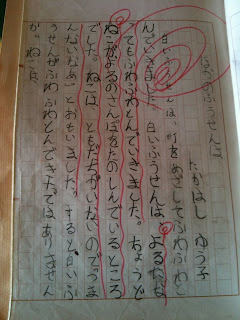 ふうのふうせんは
たかはし ゆう子
白いふうせんは、町をめざしてふわふわと
んでいきました。白いふうせんは、よるになよ
ってもふわふわとんでいきました。ちょうど
ねこがよるのさんぽをたのしんでいるところ
でした。ねこは、ともだちがいないのでつま
んないなあとおもいました。すると白いふ
うせんがふわふわとんできたではありません
か。ねこは、